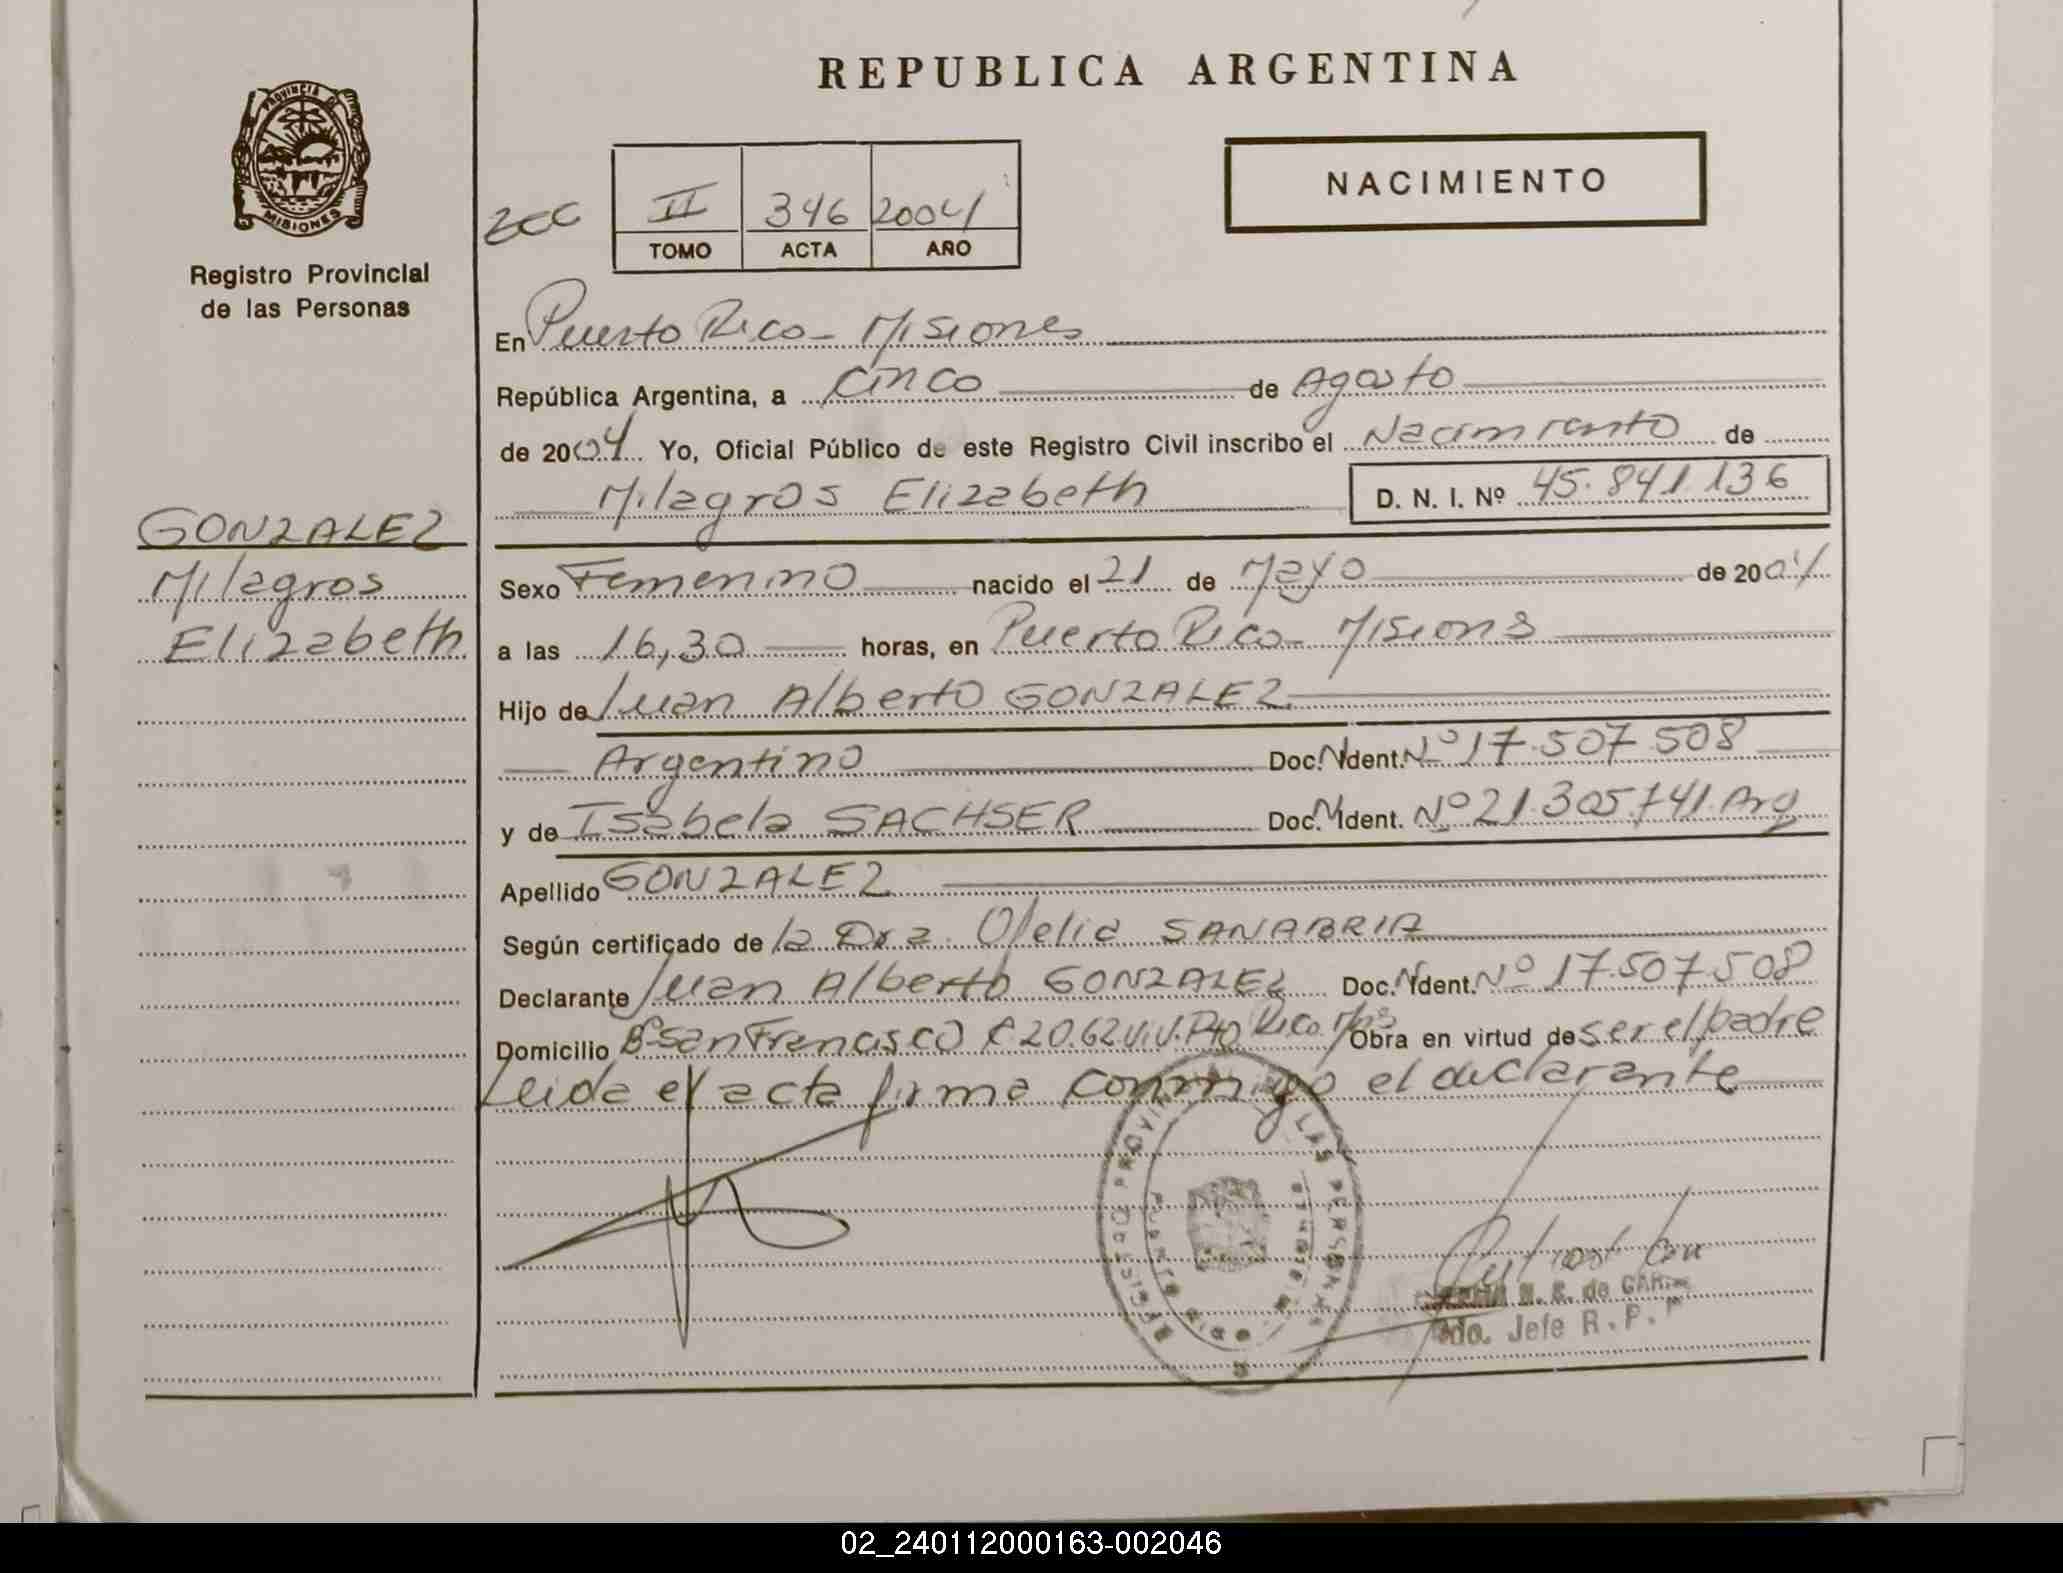 REPUBLICA ARGENTINA
PROVINCIA DE
MISIONES
Registro Provincial
de las Personas
II 346 2004
TOMO ACTA AÑO
NACIMIENTO
En Puerto Rico - Misiones
República Argentina, a cinco de Agosto
de 2004 Yo, Oficial Público de este Registro Civil inscribo el Nacimiento de
Milagros Elizabeth D. N. I. Nº 45.841.136
GONZALEZ
Milagros
Elizabeth
Sexo Femenino nacido el 21 de Mayo de 2004
a las 16,30 horas, en Puerto Rico - Misions
Hijo de Juan Alberto GONZALEZ
Argentino Doc. N Ident. Nº 17.507.508
y de Isabela SACHSER Doc. N Ident. Nº 21.305.741. Arg
Apellido GONZALEZ
Según certificado de la Dra. Ofelia SANABRIA
Declarante Juan Alberto GONZALEZ Doc. N Ident. Nº 17.507.508
Domicilio Bº San Francisco C 20. 62 Viv. Pto Rico Mns Obra en virtud de ser el padre
Leida el acta firma conmigo el declarante
PROVINCIAL LAS PERSONAS
PUERTO RICO
N. R. de
Jefe R. P.
02_240112000163-002046